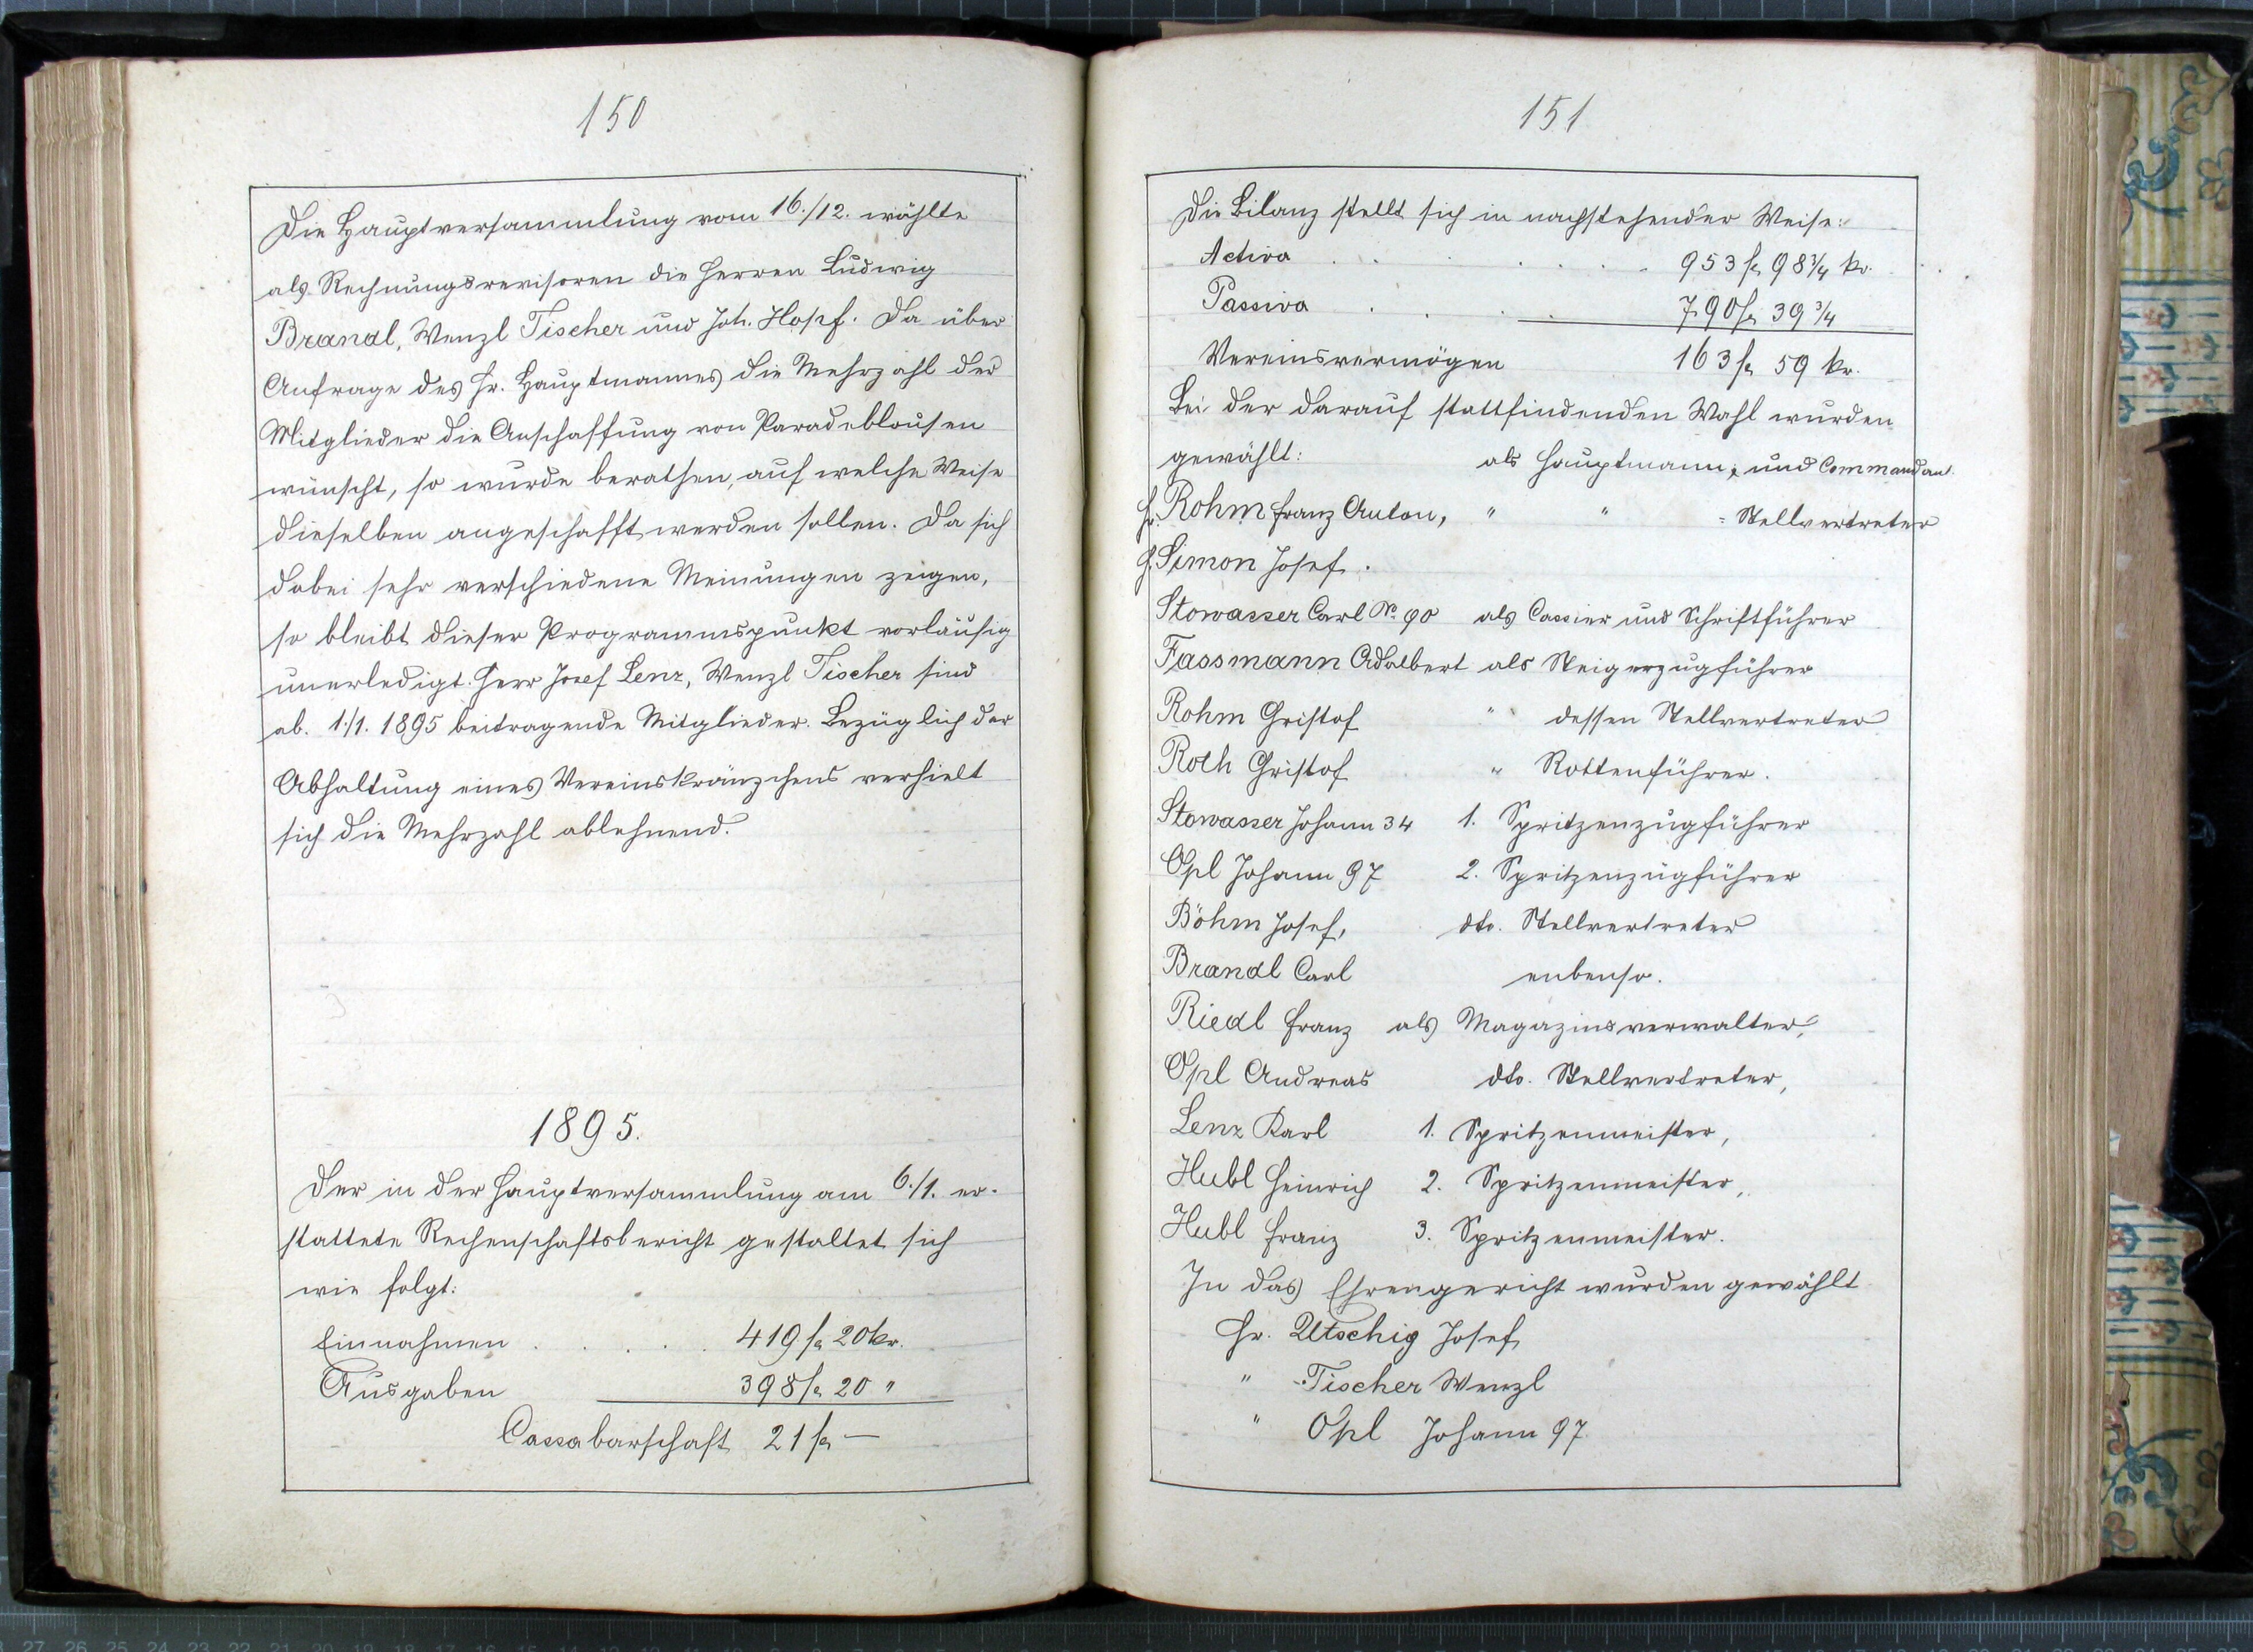 150
Die Hauptversammlung vom 16./12. wählte
als Rechnungsrevisoren die Herren Ludwig
Brandl, Wenzl Tischer und Joh. Hopf. Da über
Anfrage des Hr. Hauptmannes die Mehrzahl der
Mitglieder die Anschaffung von Paradeblousen
wünscht, so wurde berathen, auf welche Weise
dieselben angeschafft werden sollen. Da sich
dabei sehr verschiedene Meinungen zeigen,
so bleibt dieser Programmspunkt vorläufig
unerledigt. Herr Josef Lenz, Wenzl Tischer sind
ab. 1./1. 1895 beitragende Mitglieder. Bezüglich der
Abhaltung eines Vereinskränzchens verhielt
sich die Mehrzahl ablehnend.
1895.
Der in der Hauptversammlung am 6./1. er-
stattete Rechenschaftsbericht gestaltet sich
wie folgt:
Einnahmen . . . . . 419 fl 20 kr.
Ausgaben 398 fl 20 "
Cassabarschaft 21 fl —
151
Die Bilanz stellt sich in nachstehender Weise:
Activa . . . . . . . 953 fl 98 3/4 kr.
Passiva . . . . 790 fl 39 3/4
Vereinsvermögen 163 fl 59 kr.
Bei der darauf stattfindenden Wahl wurden
gewählt: als Hauptmann, und Commandant.
Hr. Rohm Franz Anton, " " = Stellvertreter
H. Simon Josef.
Stowasser Carl No. 90 als Cassier und Schriftführer
Fassmann Adalbert als Steigerzugführer
Rohm Christof " dessen Stellvertreter
Roth Christof " Rottenführer.
Stowasser Johann 34 1. Spritzenzugführer
Opl Johann 97 2. Spritzenzugführer
Böhm Josef, dto. Stellvertreter
Brandl Carl enbenso.
Riedl Franz als Magazinsverwalter,
Opl Andreas dto. Stellvertreter,
Lenz Karl 1. Spritzenmeister,
Hubl Heinrich 2. Spritzenmeister,
Hubl Franz 3. Spritzenmeister.
In das Ehrengericht wurden gewählt
Hr. Utschig Josef
" Tischer Wenzl
" Opl Johann 97.